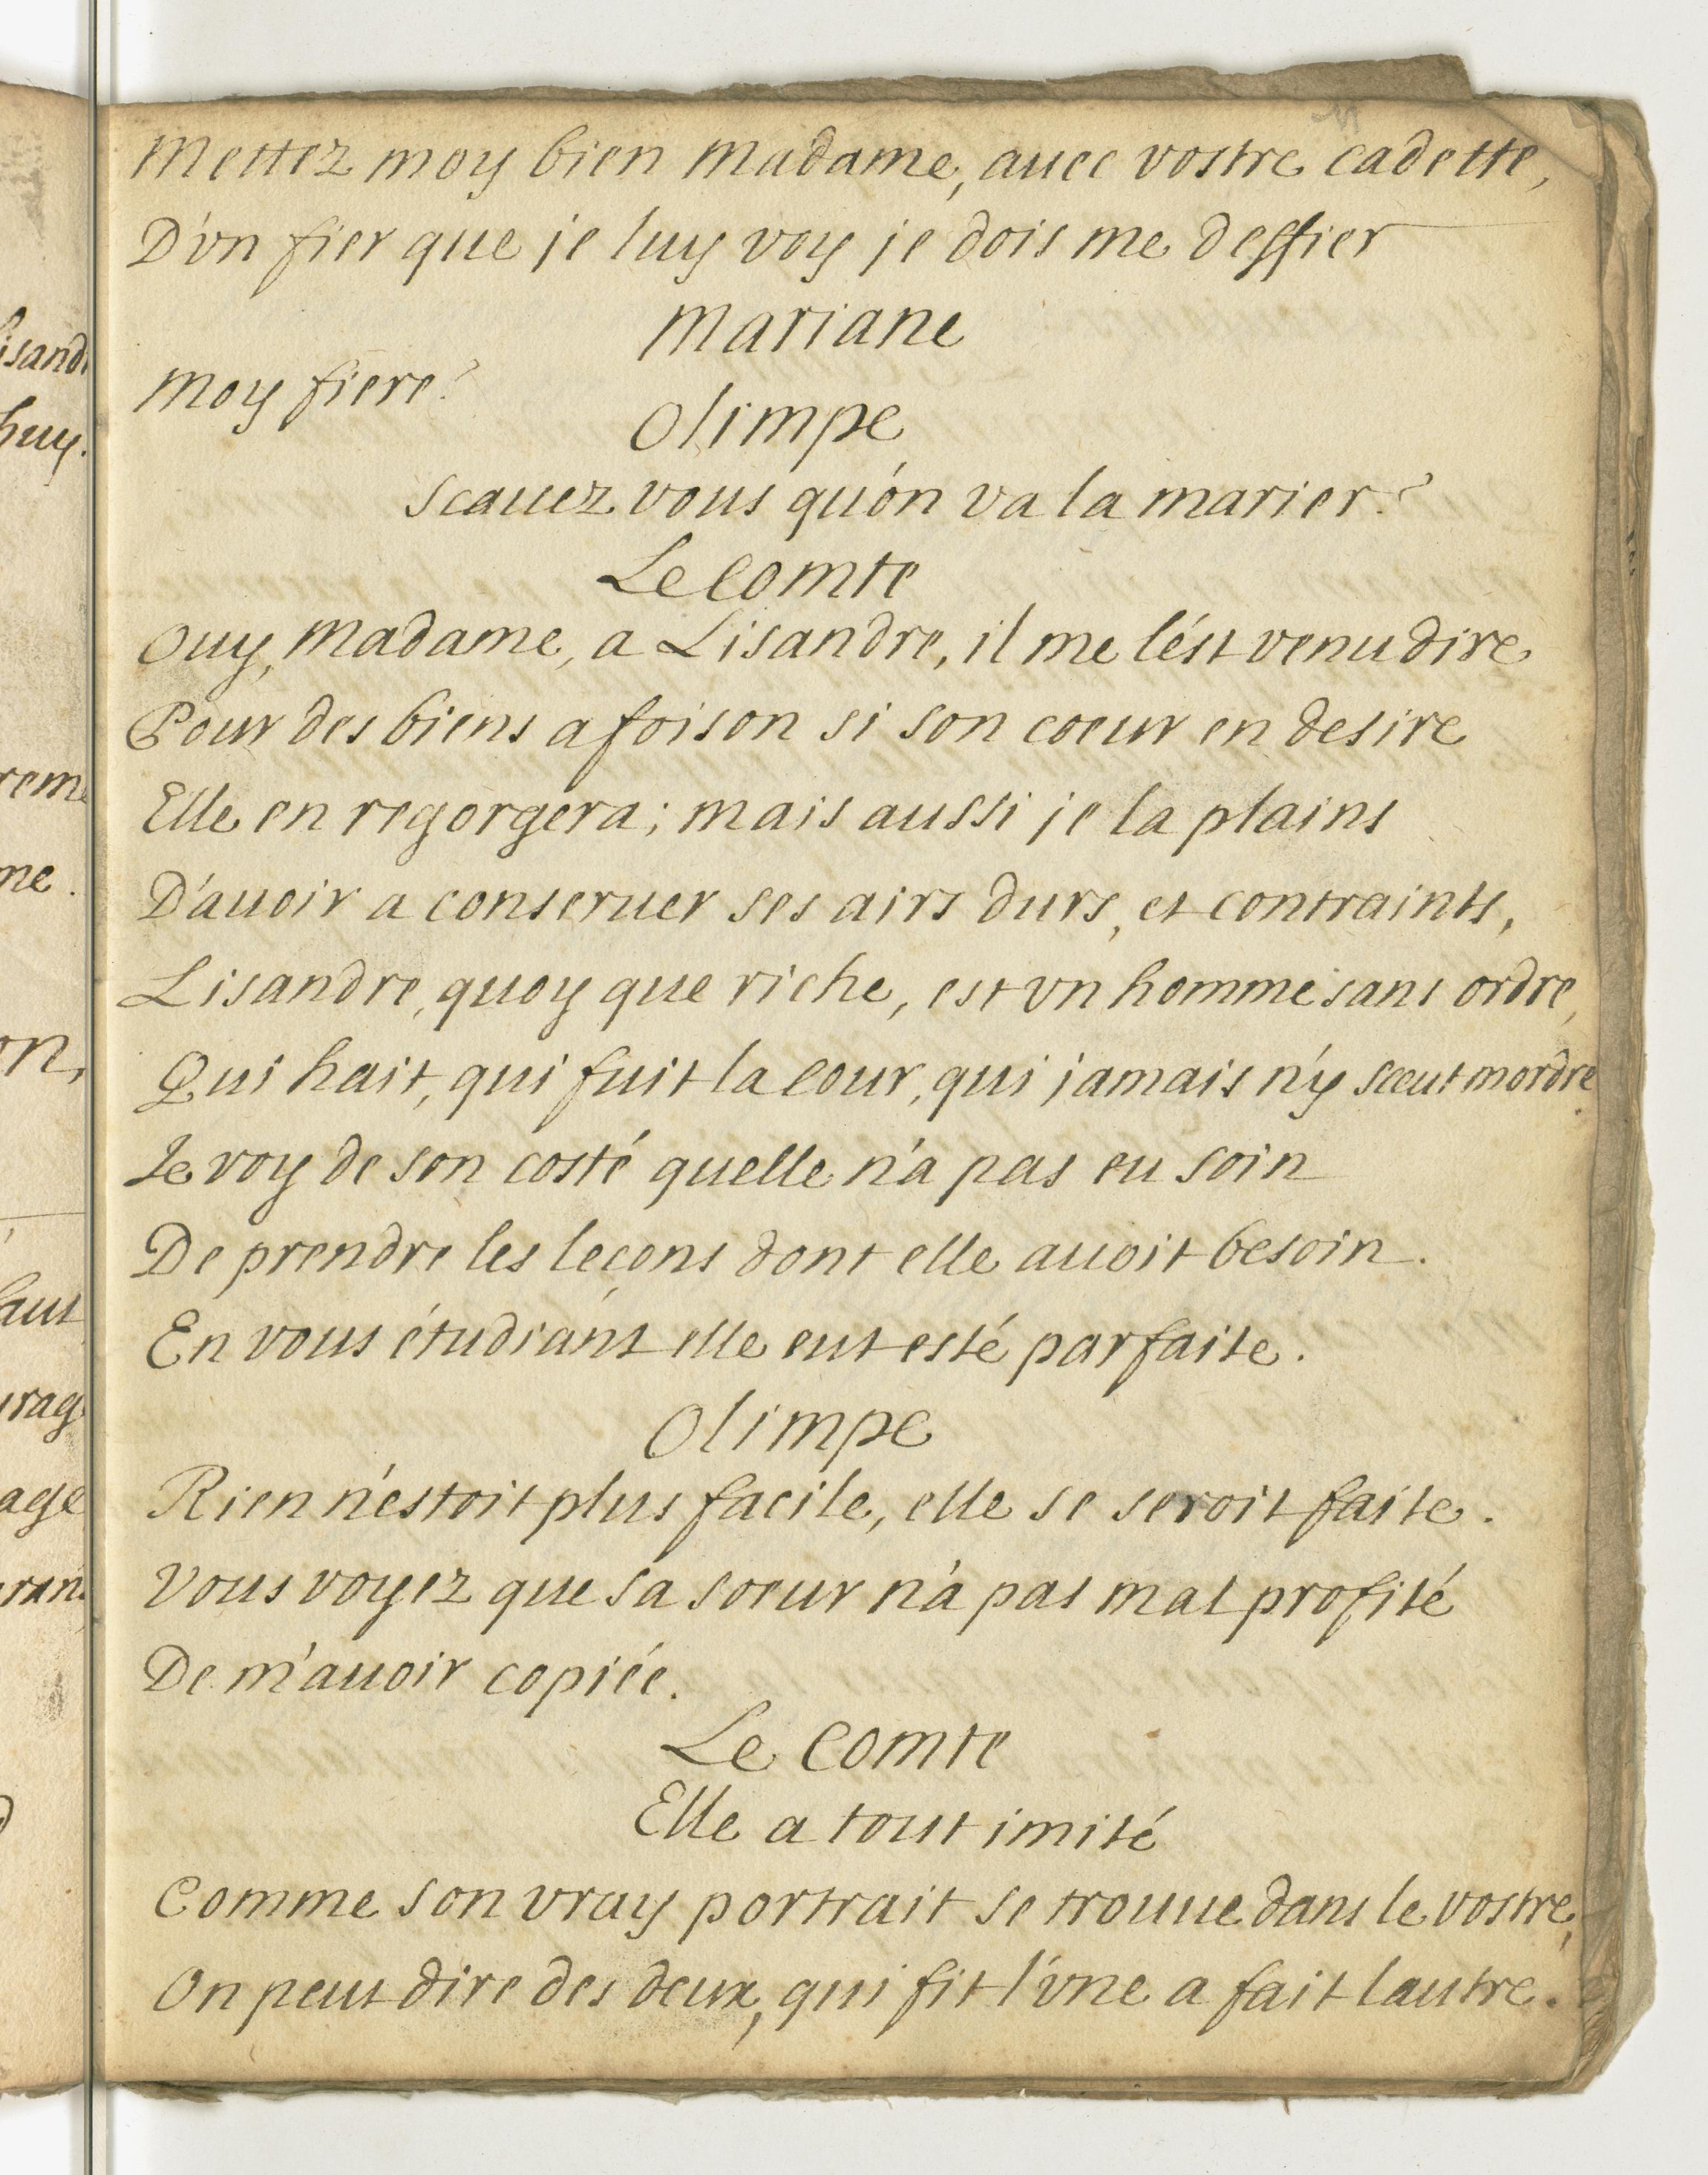 Mettez moy bien Madame, auec vostre cadette,
D'vn fier que je luy voy je dois me deffier
Mariane
Moy fiere?
Olimpe
scauez vous qu'on va la marier?
Le Comte
Ouy, Madame, a Lisandre, il me lést venu dire
Pour des biens a foison si son coeur en desire
Elle en regorgera; mais aussi je la plains
D'auoir a conseruer ses airs durs, et contraints,
Lisandre, quoy que riche, est vn homme sans ordre,
Qui hait, qui fuit la Cour, qui jamais n'y sceut mordre
Je voy de son costé quelle n'a pas eu soin
De prendre les leçons dont elle auoit besoin.
En vous étudiant elle eut esté parfaite.
Olimpe
Rien n'estoit plus facile, elle se seroit faite.
Vous voyez que sa soeur n'a pas mal profité
De m'auoir copiée.
Le Comte
Elle a tout imité
Comme son vray portrait se trouue dans le vostre,
On peut dire des deux, qui fit l'vne a fait lautre.